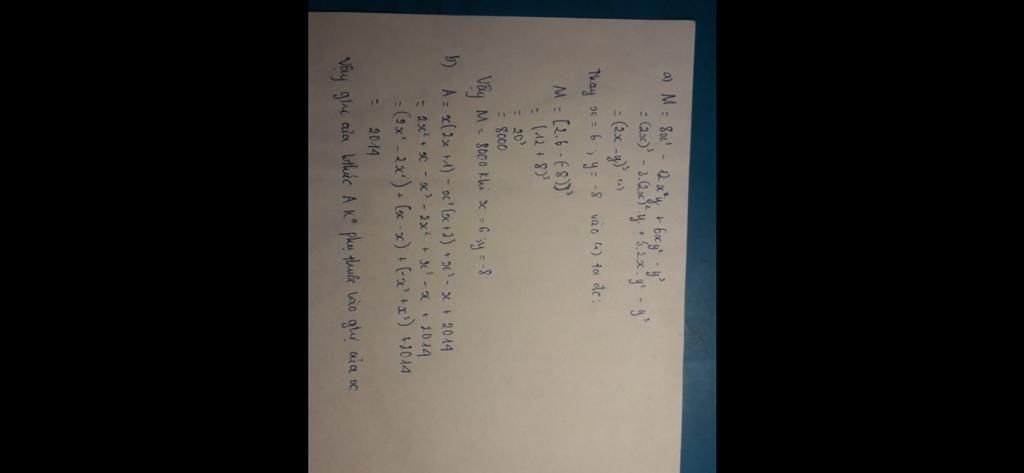 a) M = 8x³ - 12x²y + 6xy² - y³
= (2x)³ - 3.(2x)².y + 3.2x.y² - y³
= (2x - y)³ (1)
Thay x = 6 ; y = -8 vào (1) ta đc :
M = [2.6 - (-8)]³
= (12 + 8)³
= 20³
= 8000
Vậy M = 8000 khi x = 6 ; y = -8
b) A = x(2x + 1) - x²(x + 2) + x³ - x + 2014
= 2x² + x - x³ - 2x² + x³ - x + 2014
= (2x² - 2x²) + (x - x) + (-x³ + x³) + 2014
= 2014
Vậy gtrị của bthức A k° phụ thuộc vào gtrị của x